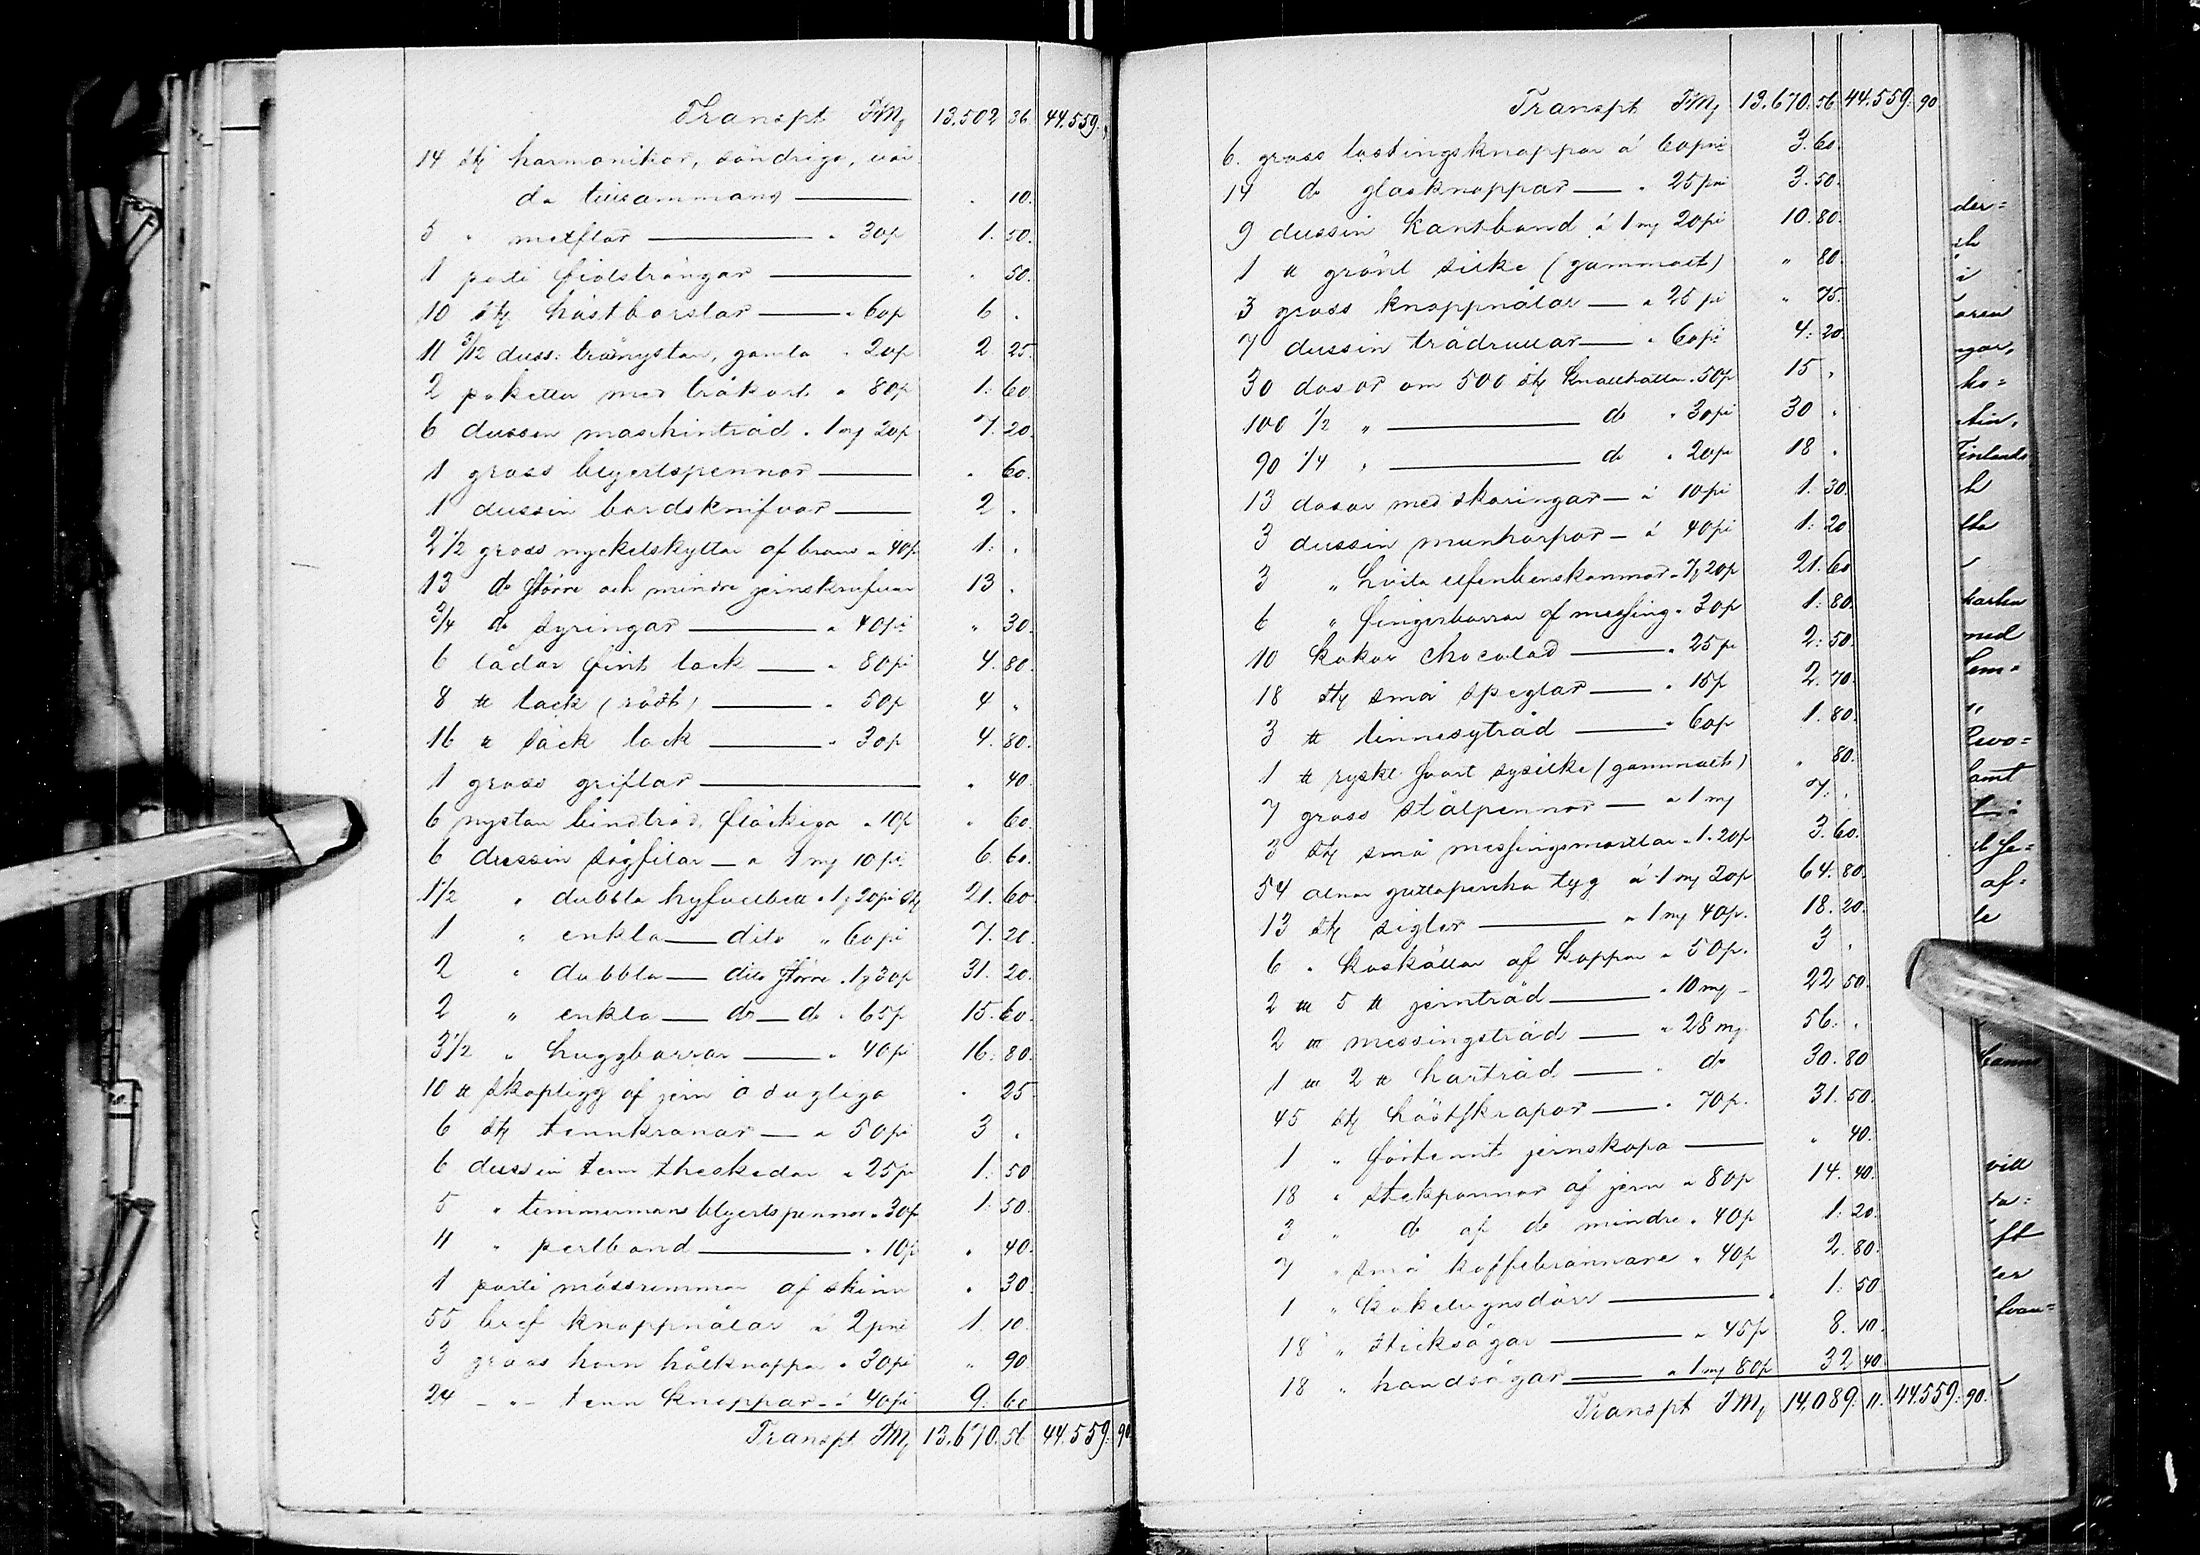 Transpt FMk 13,502 36 44,559
14 stk harmonikor, söndriga, vär
da tillsammans — " 10.
5 " metflar — " 30p 1. 50.
1 parti fiolsträngar — " 50.
10 stk hästborstar — " 60p 6 .
11 3/12 duss: trånystan, gamla " 20p 2 25.
2 paketter med tråkort " 80p 1: 60
6 dussin maschintråd " 1 my 20p 7. 20.
1 gross blyertspennor — " 60.
1 dussin bordsknifvar — 2 .
2 1/2 gross nyckelskyltar af brons a 40p 1: .
13 do större och mindre jernskrufvar 13 .
3/4 do syringar — " 40pi " 30.
6 lådor fint lack — " 80pi 4. 80.
8 ℔ lack (rödt) — " 50p 4 "
16 " säck lack — " 30p 4. 80.
1 gross griflar — " 40.
6 nystan bindtråd, fläckiga " 10p " 60.
6 dussin sågfilar — a 1 my 10 pi 6. 60.
1 1/2 " dubbla hyfvelbett " 1,20pi stk 21. 60
1 " enkla — dito " 60 pi 7. 20.
2 " dubbla — dito större " 1,30p 31. 20.
2 " enkla — do — do " 65p 15. 60.
3 1/2 " huggborrar — " 40pi 16. 80.
10 ℔ skopligg af jern odugliga " 25
6 stk tennkranar — a 50pi 3 .
6 dussin tenn theskedar a 25p 1: 50
5 " timmermans blyertspennor " 30p 1. 50.
4 " perlband — " 10p " 40.
1 parti mössremmar af skinn " 30.
55 bref knappnålar á 2 pni 1. 10.
3 gross horn hålknappar " 30pi " 90
24 - " - tenn knappar - á 40pi 9. 60
Transpt FMk 13,670. 56 44.559. 90
Transpt FMk 13,670. 56 44.559. 90
6. gross lastingsknappar á 60pni 3. 60.
14 do glasknappar — " 25pni 3. 50.
9 dussin kantband á 1 my 20pi 10. 80.
1 ℔ grönt silke (gammalt) " 80.
3 gross knappnålar — a 25 pi " 75.
7 dussin trådrullar — " 60pi 4: 20.
30 dosor om 500 stk knallhattar " 50p 15 "
100 1/2 " — do " 30pi 30 "
90 1/4 " — do " 20pi 18 "
13 dosor med skoringar — á 10pi 1. 30.
3 dussin munharpor — á 40pi 1: 20
3 " hvita elfenbenskammar " 7,20p 21. 60
6 " fingerborrar af messing " 30p 1: 80.
10 kakor chocolad — " 25p 2: 50.
18 stk små speglar — " 15p 2. 70.
3 ℔ linnesytråd — " 60p 1. 80.
1 ℔ ryskt svart sysilke (gammalt) " 80.
7 gross stålpennor — a 1 my 7. .
3 stk små messingsmortlar " 1.20p 3. 60.
54 alnar guttapercha tyg á 1 my 20p 64. 80.
13 stk sigter — a 1 my 40p. 18. 20.
6 " koskällor af koppar a 50p. 3 .
2 ℔ 5 ℔ jerntråd — " 10 my - 22 50.
2 ℔ messingstråd — " 28 my 56. .
1 ℔ 2 ℔ hartråd — " do 30. 80
45 stk hästskrapor — " 70p. 31. 50.
1 " förtennt jernskopa — " 40.
18 " stekpannor af jern a 80p 14. 40.
3 " do af do mindre " 40p 1: 20.
7 " små kaffebrännare " 40p 2. 80.
1 " kakelugnsdörr — 1: 50
18 " sticksågar — a 45p 8. 10.
18 " handsågar — a 1 my 80p 32 40
Transpt FMk 14,089. 11. 44.559. 90.